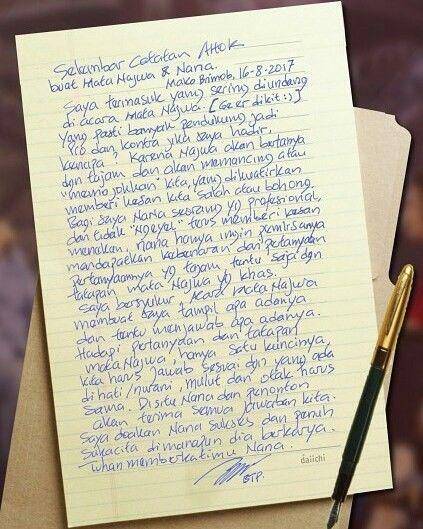 Selembar Catatan Ahok
buat Mata Najwa & Nana.
Mako Brimob, 16-8-2017
Saya termasuk yang sering diundang
di acara Mata Najwa. [Geer dikit :)]
Yang pasti banyak pendukung jadi
pro dan kontra jika saya hadir,
kenapa? Karena Najwa akan bertanya
dgn tajam dan akan memancing atau
"memojokkan" kita, yang dikuatirkan
memberi kesan kita salah atau bohong.
Bagi saya Nana seorang yg profesional,
dan tidak "ngeyel" terus memberi kesan
menekan, nana hanya ingin pemirsanya
mendapatkan kebenaran dari pertanyaan
pertanyaannya yg tajam tentu saja dgn
tatapan mata Najwa yg khas.
Saya bersyukur, acara Mata Najwa
membuat saya tampil apa adanya
dan tentu menjawab apa adanya.
Hadapi pertanyaan dan tatapan
mata Najwa, hanya satu kuncinya,
kita harus jawab sesuai dgn yang ada
di hati/nurani, mulut dan otak harus
sama. Disitu Nana dan penonton
akan terima semua jawaban kita.
Saya doakan Nana sukses dan penuh
sukacita dimanapun dia berkarya.
Tuhan memberkatimu Nana.
daiichi
BTP.